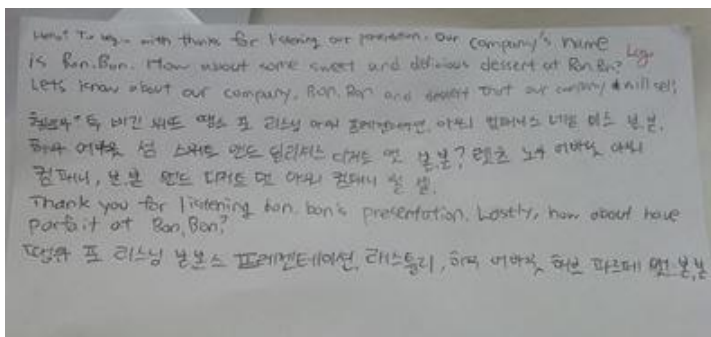 Hello? To begin with thanks for listening our presentation. Our company's name
is Bon.Bon. How about some sweet and delicious dessert at Bon.Bon?
Lets know about our company, Bon.Bon and dessert that our company will sell
투 비긴 위드 땡스 포 리스닝 아워 프레젠테이션, 아워 컴퍼니스 네임 이즈 본.본.
하우 어바웃 섬 스위트 앤드 딜리셔스 디저트 엣 본.본? 렛츠 노우 어바웃 아워
컴퍼니, 본.본 앤드 디저트 댓 아워 컴퍼니 윌 셀.
Thank you for listening bon.bon's presentation. Lastly, how about have
parfait at Bon.Bon?
땡큐 포 리스닝 본본스 프레젠테이션, 래스틀리, 하우 어바웃 해브 파르페 엣 본.본